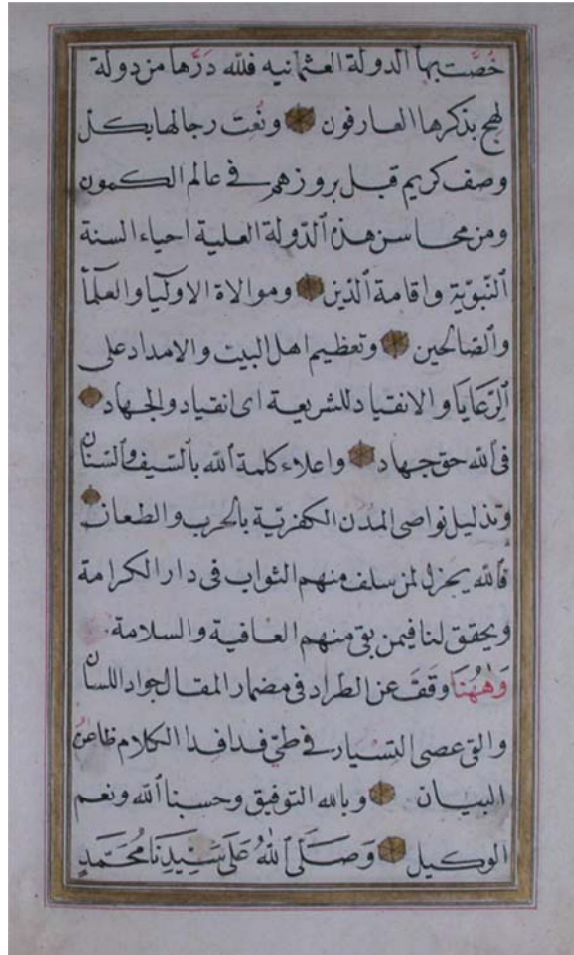 خُصّت بها الدولة العثمانيه فلله دَرُّها من دولة
لهج بذكرها العارفون ونُعِت رجالها بكل
وصف كريم قبل بروزهم في عالم الكمون
ومن محاسن هذه الدّولة العلية احياء السنة
النّبويّة واقامة الدّين وموالاة الاوليا والعلمآ
والصّالحين وتعظيم اهل البيت والامداد على
الرّعايا والانقياد للشريعة اى انقياد والجهاد
في الله حق جهاد واعلاء كلمة الله بالسّيف والسّنان
وتذليل نواصى المدن الكفريّة بالحرب والطعان
فالله يجزل لمن سلف منهم الثواب في دار الكرامة
ويحقق لنا فيمن بقى منهم العافية والسلامة
وَهٰهُنَا وَقَفَ عن الطراد في مضمار المقال جواد اللسان
والقى عصى التّسيار في طيّ فدافد الكلام ظاعن
البيان وبالله التوفيق وحسبنا الله ونعم
الوكيل وَصَلَّى اللهُ عَلَى سَيِّدِنَا مُحَمَّدٍ